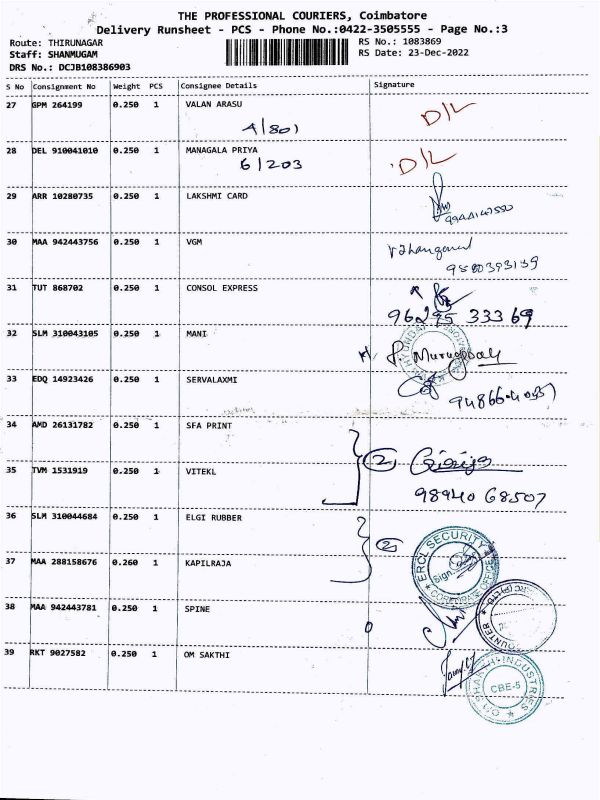 THE PROFESSIONAL COURIERS, Coimbatore
Delivery Runsheet - PCS - Phone No.:0422-3505555 - Page No.:3
Route: THIRUNAGAR RS No.: 1083869
Staff: SHANMUGAM RS Date: 23-Dec-2022
DRS No.: DCJB108386903
S No Consignment No Weight PCS Consignee Details Signature
27 GPM 264199 0.250 1 VALAN ARASU D/L
4/801
28 DEL 910041010 0.250 1 MANAGALA PRIYA D/L
6/203
29 ARR 10280735 0.250 1 LAKSHMI CARD
30 MAA 942443756 0.250 1 VGM
9580393139
31 TUT 868702 0.250 1 CONSOL EXPRESS
96295 33369
32 SLM 310043105 0.250 1 MANI
P. Murugasay
33 EDQ 14923426 0.250 1 SERVALAXMI
34 AMD 26131782 0.250 1 SFA PRINT
2
35 TVM 1531919 0.250 1 VITEKL
98940 68507
36 SLM 310044684 0.250 1 ELGI RUBBER
2
ERCL SECURITY
Sign.
CORPORATE OFFICE
37 MAA 288158676 0.260 1 KAPILRAJA
38 MAA 942443781 0.250 1 SPINE
39 RKT 9027582 0.250 1 OM SAKTHI
OM SHAKTHI INDUSTRIES
CBE-6